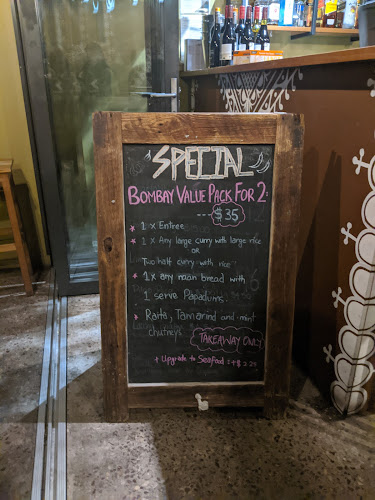 SPECIAL
BOMBAY VALUE PACK FOR 2:
--- $35
* 1 x Entree
* 1 x Any large curry with large rice
OR
Two half curry with rice
* 1x any naan bread with
1 serve Papadums.
* Raita, Tamarind and mint
chutneys
TAKEAWAY ONLY
+ Upgrade to Seafood :+$